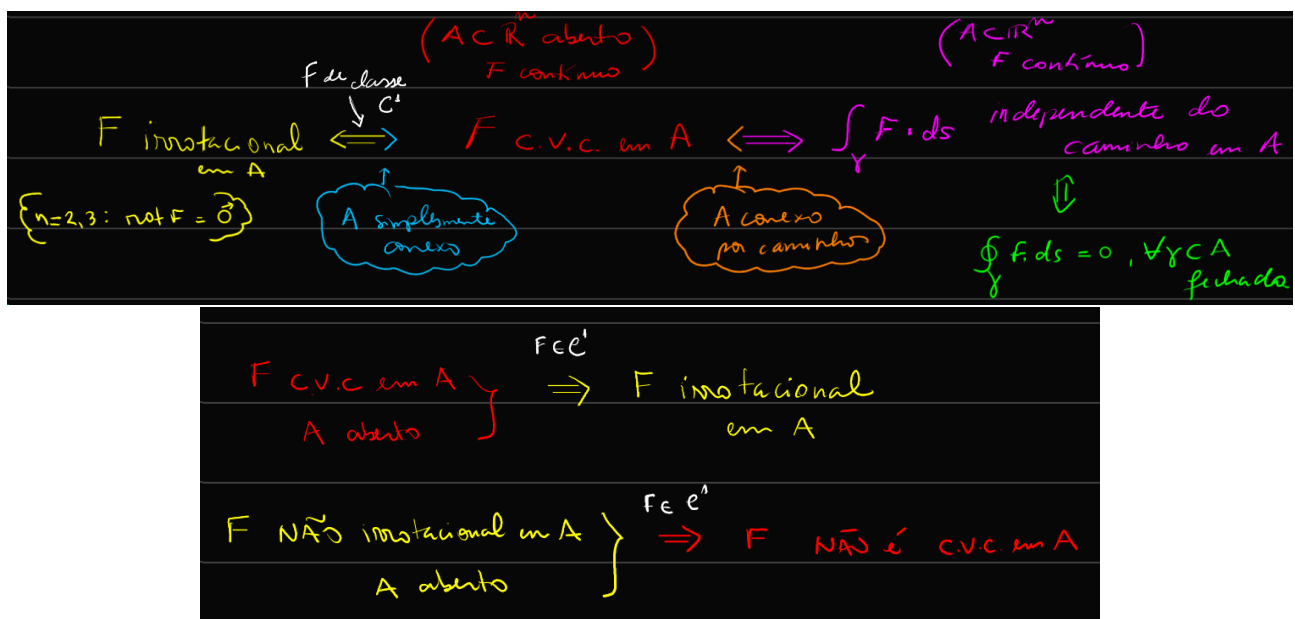 (A ⊂ ℝⁿ aberto)
F contínuo
(A ⊂ ℝⁿ
F contínuo)
F de classe
C¹
F irrotacional em A ⟺ F C.V.C. em A ⟺ ∫_γ F · ds independente do
caminho em A
{n=2,3: rot F = 0⃗}
A simplesmente
conexo
A conexo
por caminhos
⇕
∮_γ F. ds = 0, ∀γ ⊂ A
fechada
F ∈ C¹
F C.V.C em A } ⟹ F irrotacional
A aberto
em A
F ∈ C¹
F NÃO irrotacional em A } ⟹ F NÃO é C.V.C. em A
A aberto